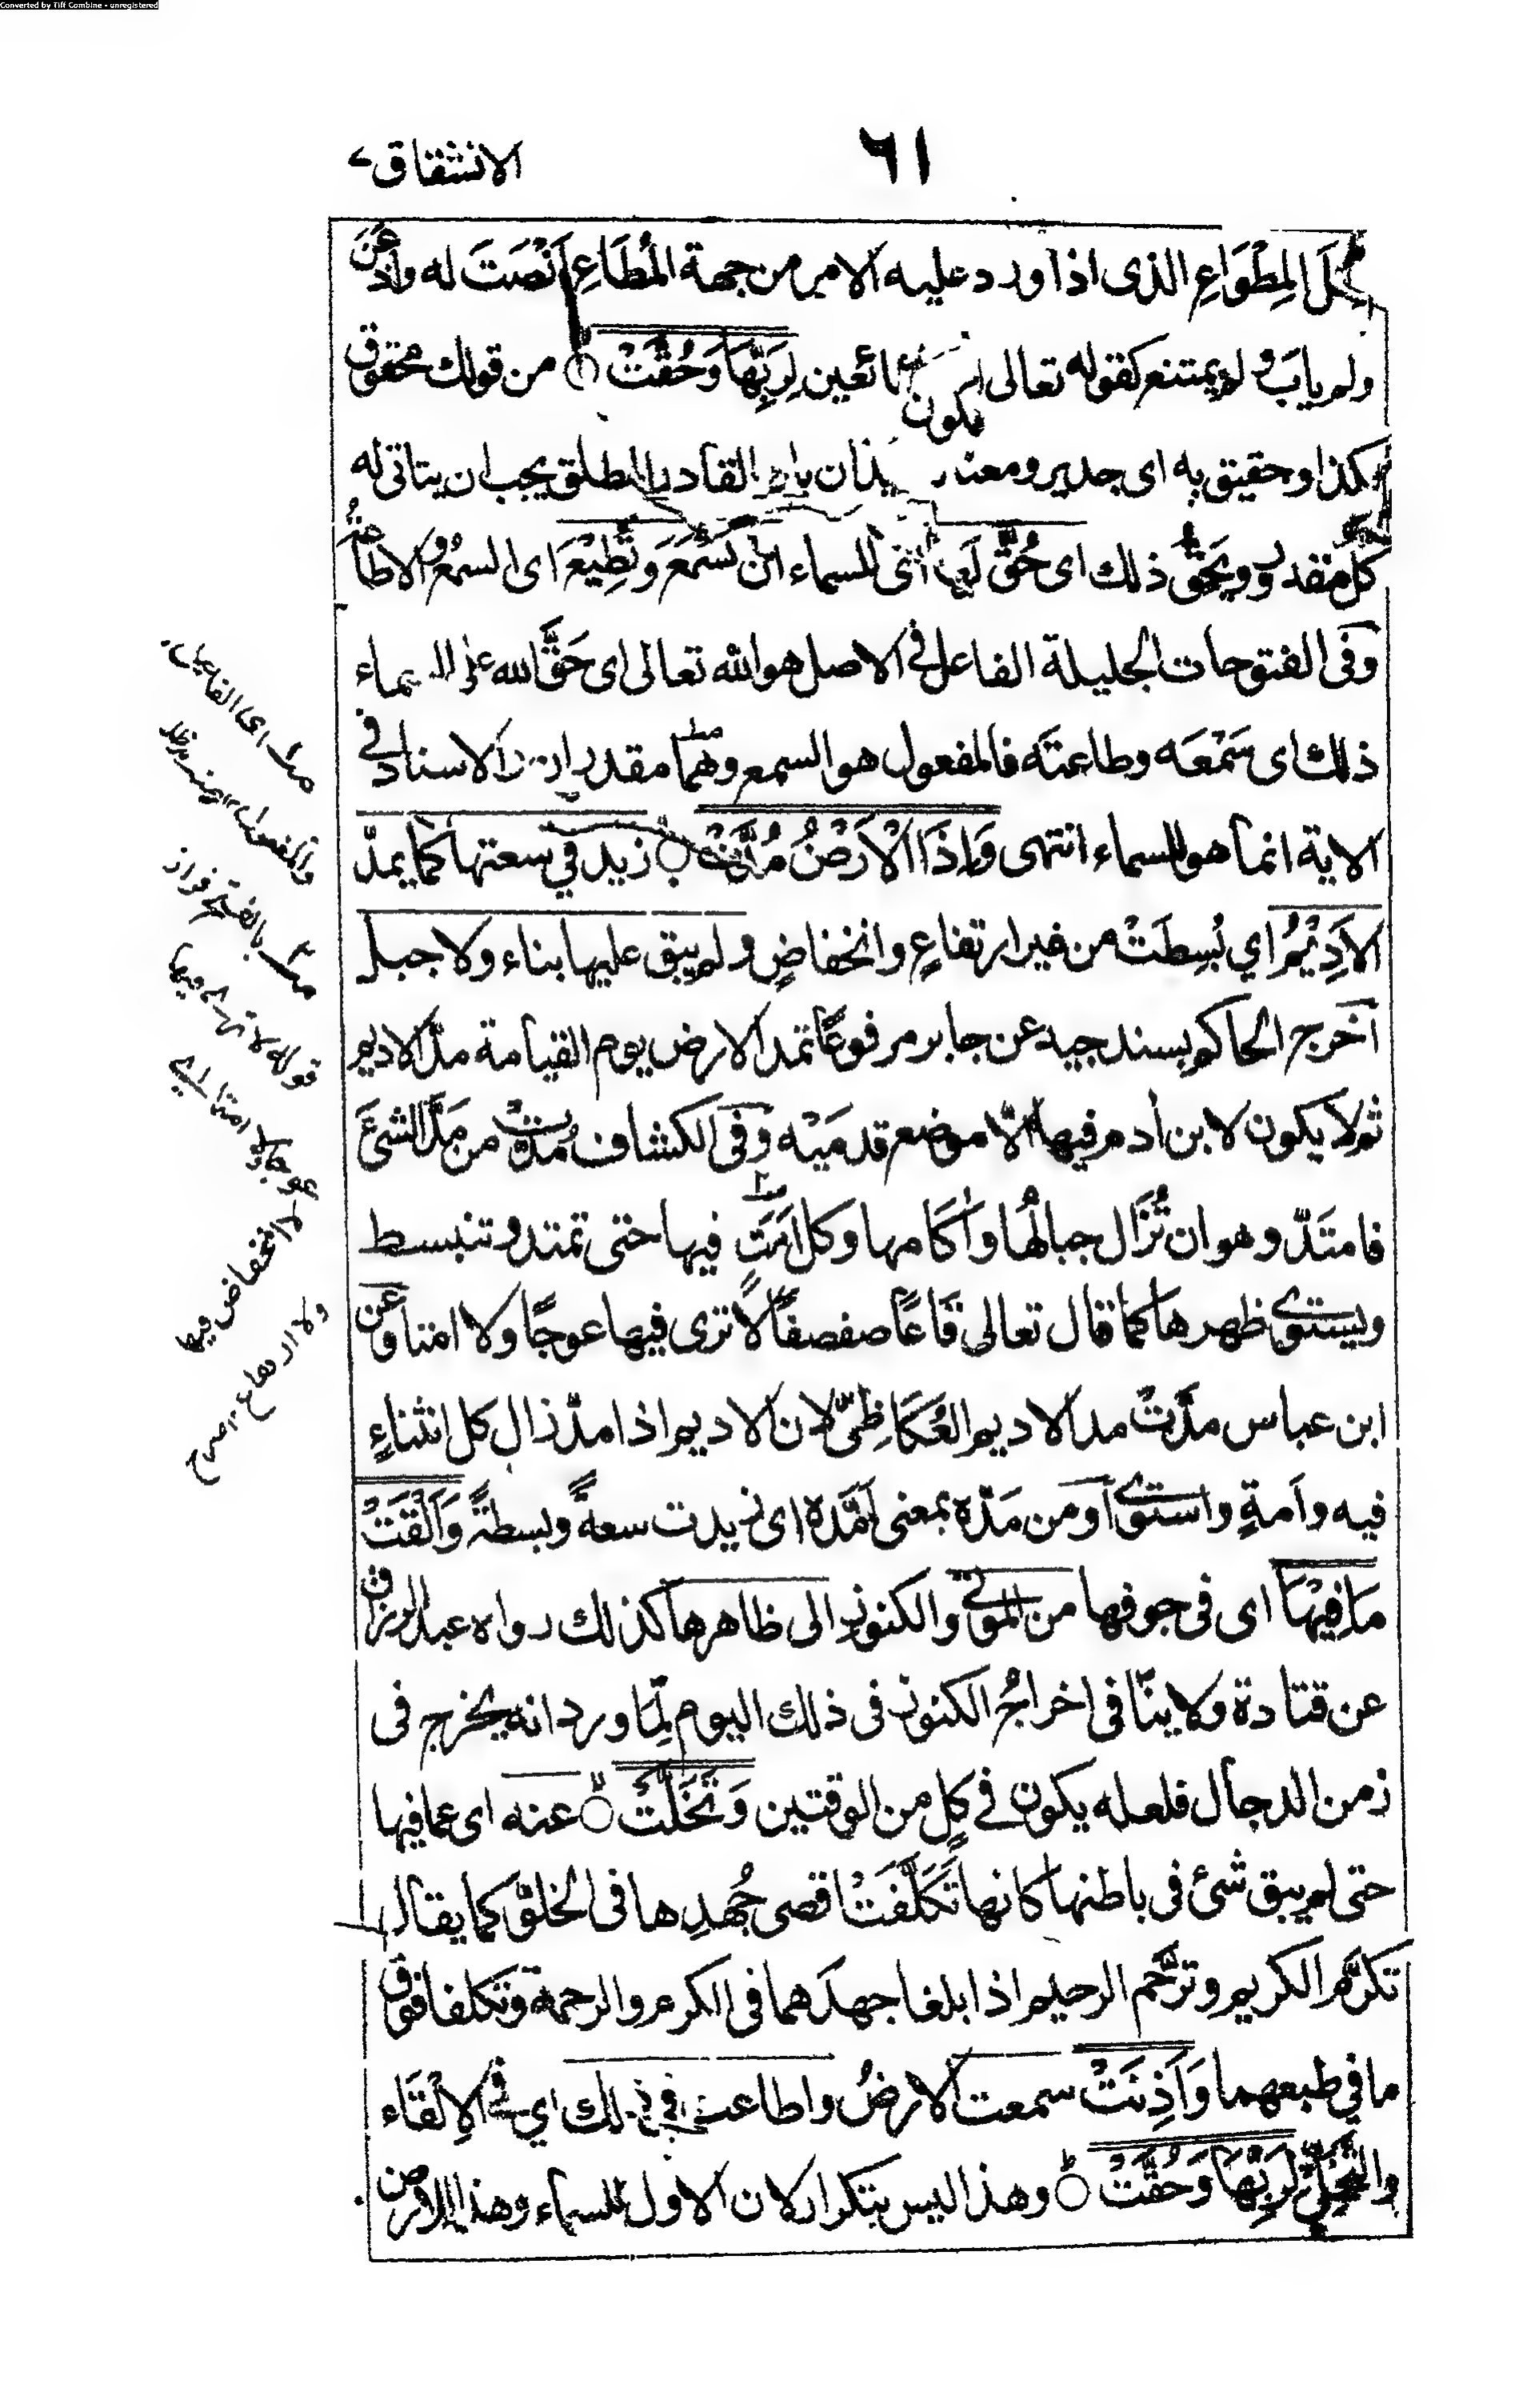 Converted by Tiff Combine - unregistered
٦١
الانشقاق
المِطْوَاعِ الذى اذا ورد عليه الامر من جهة المُطَاعِ أَنْصَتَ له وأذعَنَ
ولم يابَ ولم يمتنع كقوله تعالى طائعين لِرَبِّهَا وَحُقَّتْ من قولك محقوق
بكذا وحقيق به اى جدير ومعناه القادر المطلق يجب ان يتاتى له
كلُّ مقدور ويَحِقُّ ذلك اى حُقَّ لَها أنى للسماء ان تَسْمَعَ وَتُطِيْعَ اى السمعُ والاطاعةُ
وفى الفتوحات الجليلة الفاعل فى الاصل هو الله تعالى اى حَقَّ الله على السماء
ذلك اى سَمْعَه وطاعتَه فالمفعول هو السمع وهما مقدران والاسناد فى
الاية انما هو للسماء انتهى وَاِذَا الْاَرْضُ مُدَّتْ زيد في سعتها كما يمدّ
الاَدِيْمُ اي بُسِطَتْ من غير ارتفاعٍ وانخفاضٍ ولم يبق عليها بناء ولا جبل
اخرج الحاكم بسند جيد عن جابر مرفوعًا تمد الارض يوم القيامة مدّ الاديم
ثم لا يكون لابن أدم فيها الّا موضع قدمَيْه وفى الكشاف مُدّت من مَدَّ الشئَ
فامتَدّ وهو ان تُزَال جبالُها وأكَامها وكل اَمْتٍ فيها حتى تمتد وتنبسط
ويستوى ظهرها كما قال تعالى قَاعًا صفصفًا لا ترى فيها عوجًا ولا امتا وعن
ابن عباس مدّتْ مد الاديم العُكَاظِىّ لان الاديم اذا مدّ زال كل انثناءٍ
فيه وأمةٍ واستوى او من مَدّه بمعنى اَمَدّه اى زيدت سعةً وبسطةً وَاَلْقَتْ
مَا فِيْهَا اى فى جوفها من الموتى والكنوز الى ظاهرها كذلك رواه عبد الرزاق
عن قتادة ولا ينافى اخراجُ الكنوز فى ذلك اليوم لِمَا ورد انه يخرج فى
زمن الدجال فلعله يكون فى كلٍ من الوقتين وَتَخَلَّتْ عنه اى عما فيها
حتى لم يبق شئ فى باطنها كانها تَكَلَّفَتْ اقصى جُهْدِها فى الخلوّ كما يقال
تكرَّم الكريم وترَّحم الرحيم اذا بلغا جهدَهما فى الكرم والرحمة وتكلفا فوق
ما في طبعهما وَاَذِنَتْ سمعت الارضُ واطاعت فى ذلك اي فى الاِلْقَاء
والتَّخَلِّيْ لِرَبِّهَا وَحُقَّتْ وهذا ليس بتكرار لان الاول للسماء وهذا للارض
اى الفاعل
بالفتح فراز
قوله لا ترى فيها
عوجا ولا امتا اي
انخفاض فيها
ولا ارتفاع